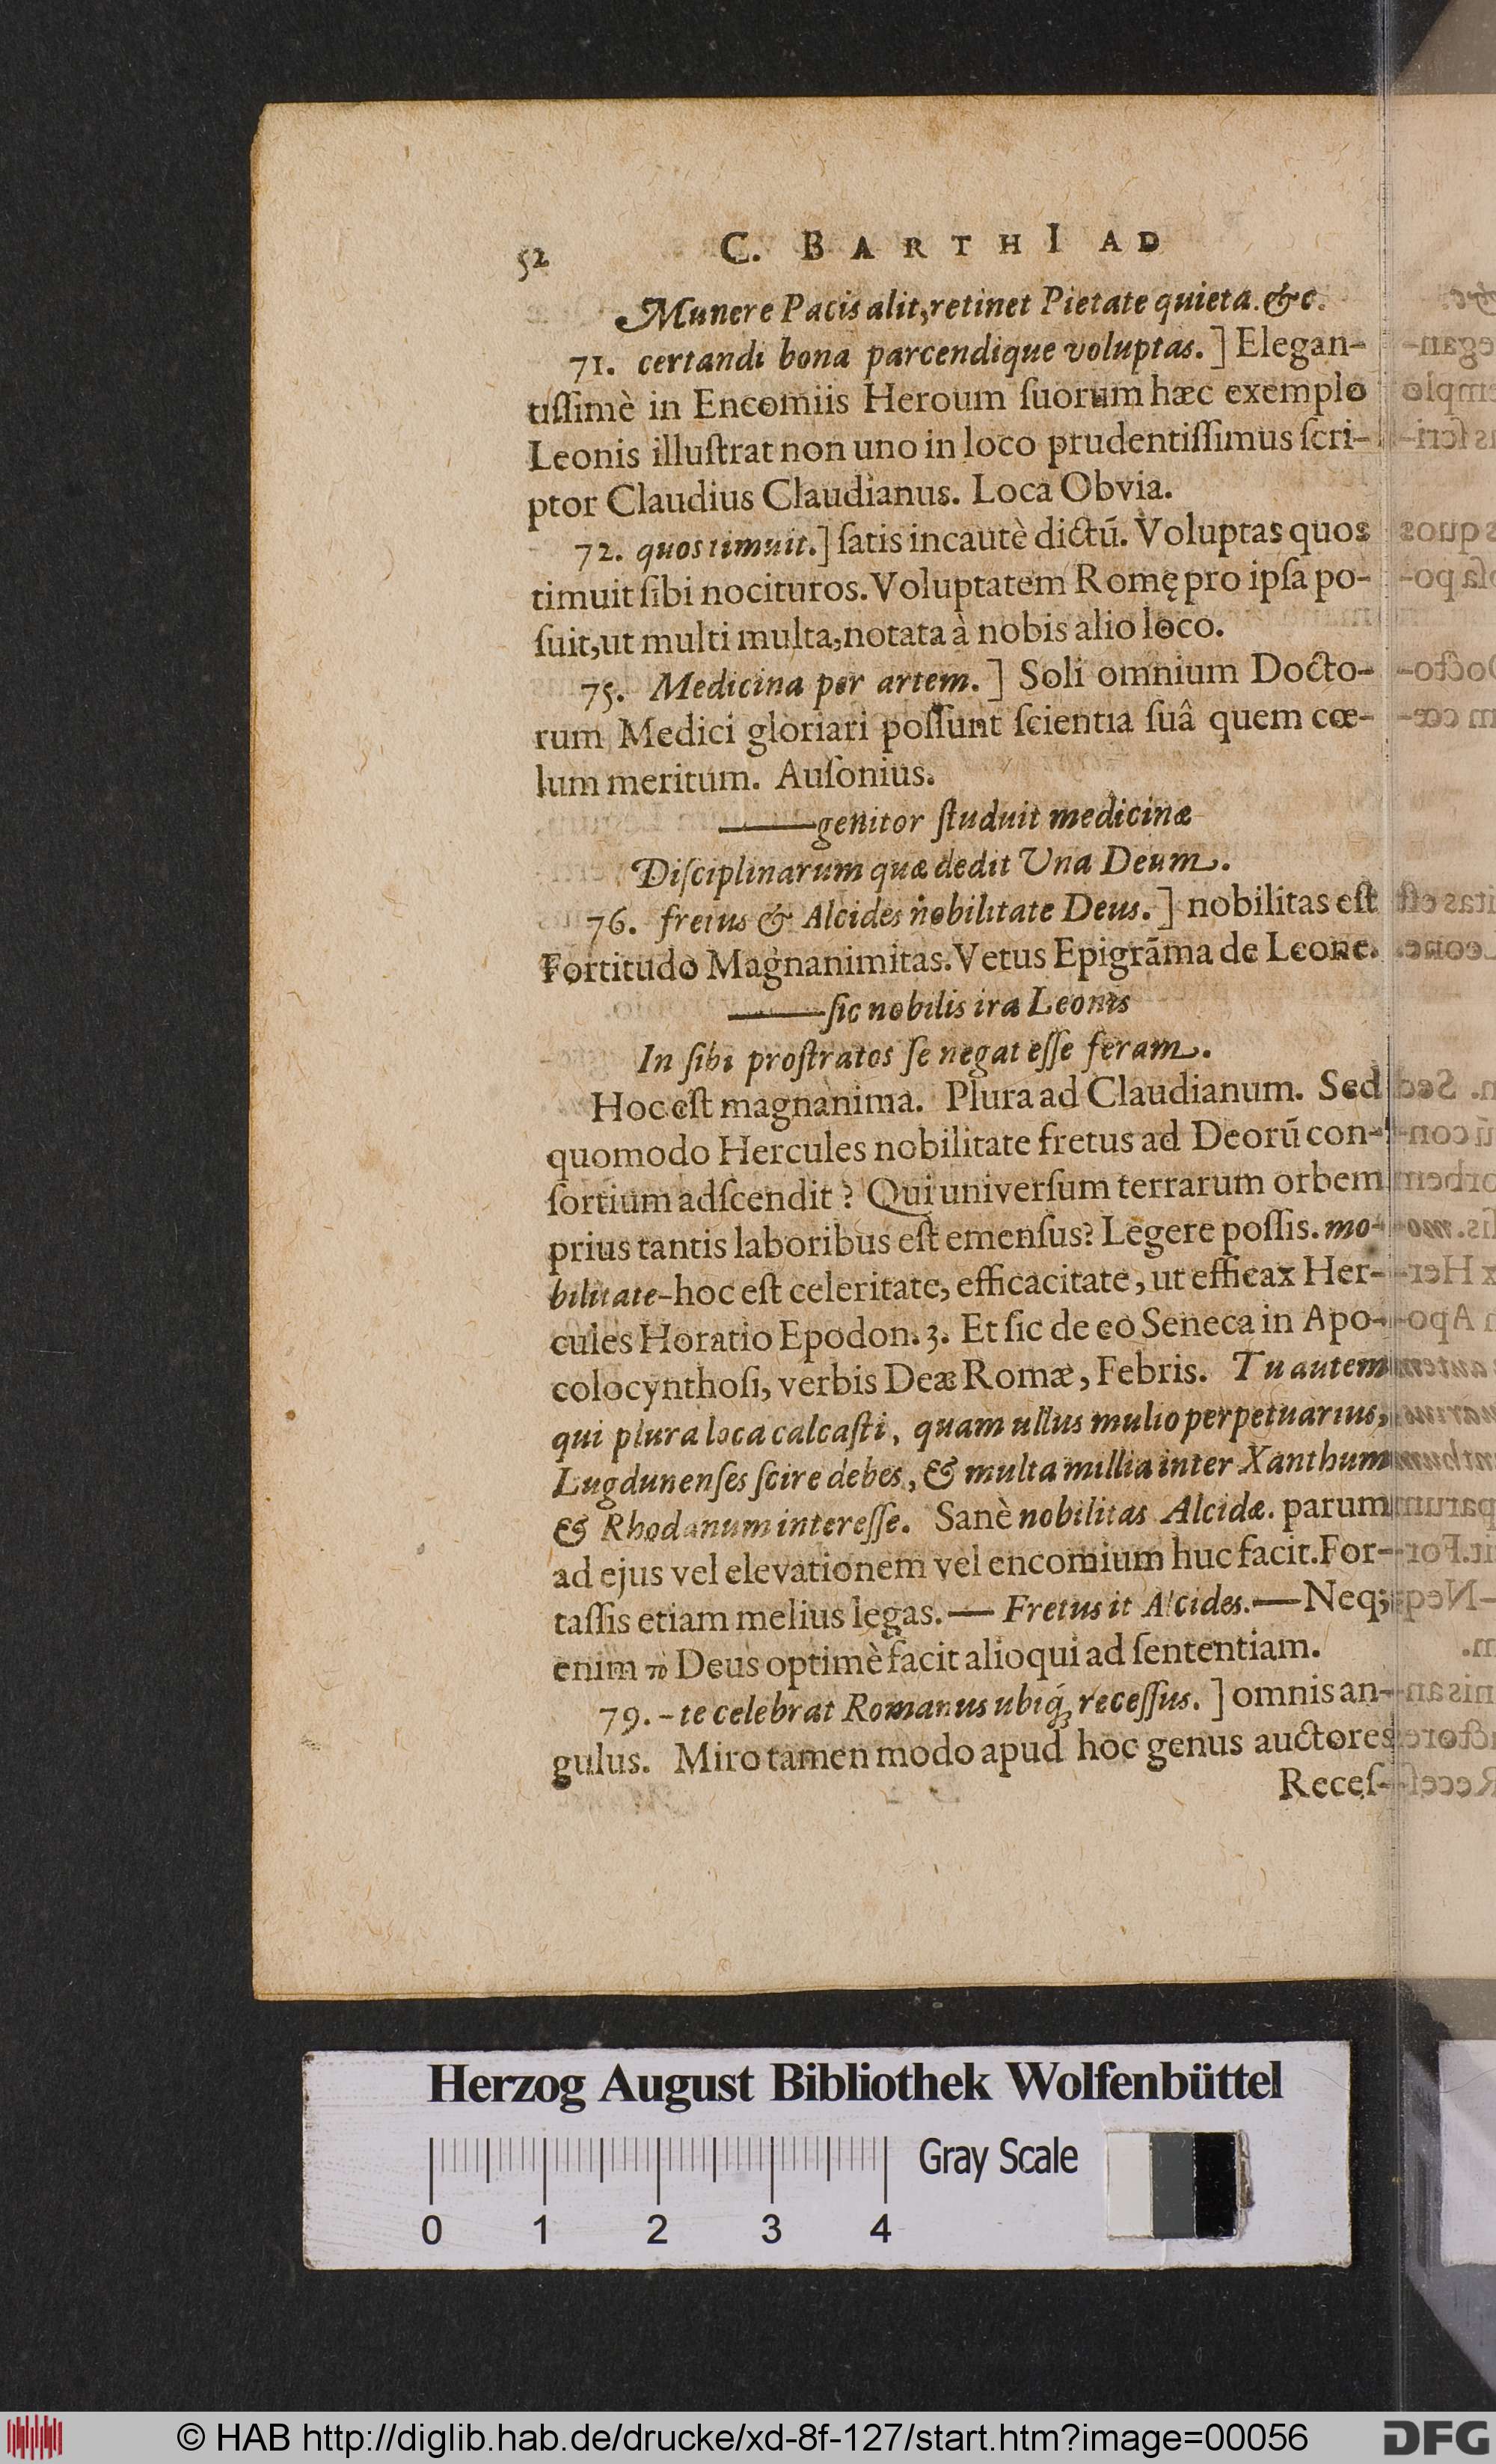 52 C. BARTHI AD
Munere Pacis alit, retinet Pietate quieta. &c.
71. certandi bona parcendique voluptas.] Elegan-
tiſſimè in Encomiis Heroum ſuorum hæc exemplo
Leonis illuſtrat non uno in loco prudentiſſimus ſcri-
ptor Claudius Claudianus. Loca Obvia.
72. quos timuit.] ſatis incautè dictū. Voluptas quos
timuit ſibi nocituros. Voluptatem Romę pro ipſa po-
ſuit, ut multi multa, notata à nobis alio loco.
75. Medicina per artem.] Soli omnium Docto-
rum Medici gloriari poſſunt ſcientia ſuâ quem cœ-
lum meritum. Auſonius.
——genitor ſtuduit medicinæ
Diſciplinarum quæ dedit Una Deum.
76. fretus & Alcides nobilitate Deus.] nobilitas eſt
Fortitudo Magnanimitas. Vetus Epigrāma de Leone.
——ſic nobilis ira Leonis
In ſibi proſtratos ſe negat eſſe feram.
Hoc eſt magnanima. Plura ad Claudianum. Sed
quomodo Hercules nobilitate fretus ad Deorū con-
ſortium adſcendit? Qui univerſum terrarum orbem
prius tantis laboribus eſt emenſus? Legere poſſis. mo-
bilitate-hoc eſt celeritate, efficacitate, ut efficax Her-
cules Horatio Epodon. 3. Et ſic de eo Seneca in Apo-
colocynthoſi, verbis Deæ Romæ, Febris. Tu autem
qui plura loca calcaſti, quam ullus mulio perpetuarius,
Lugdunenſes ſcire debes, & multa millia inter Xanthum
& Rhodanum intereſſe. Sanè nobilitas Alcidæ. parum
ad ejus vel elevationem vel encomium huc facit. For-
taſſis etiam melius legas. — Fretus it Alcides. — Neq;
enim τὸ Deus optimè facit alioqui ad ſententiam.
79. - te celebrat Romanus ubiq́; receſſus.] omnis an-
gulus. Miro tamen modo apud hoc genus auctores
Receſ-
Herzog August Bibliothek Wolfenbüttel
0 1 2 3 4 Gray Scale
© HAB http://diglib.hab.de/drucke/xd-8f-127/start.htm?image=00056 DFG